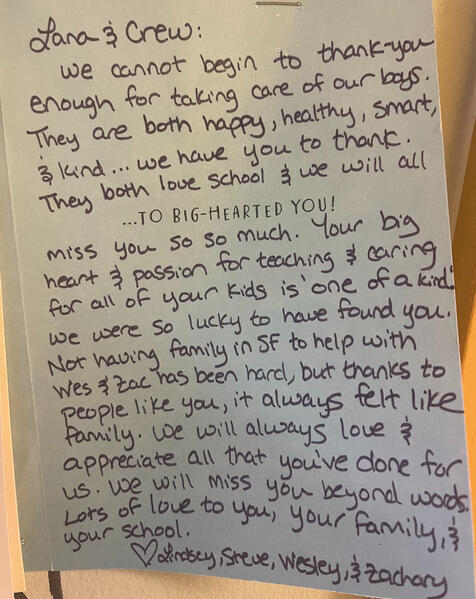 Lana & Crew:
we cannot begin to thank-you
enough for taking care of our boys.
They are both happy, healthy, smart,
& kind... we have you to thank.
They both love school & we will all
...TO BIG-HEARTED YOU!
miss you so so much. Your big
heart & passion for teaching & caring
for all of your kids is 'one of a kind.'
we were so lucky to have found you.
Not having family in SF to help with
Wes & Zac has been hard, but thanks to
people like you, it always felt like
family. We will always love &
appreciate all that you've done for
us. We will miss you beyond words.
Lots of love to you, your family, &
your school.
♡ Lindsey, Steve, Wesley, & Zachary